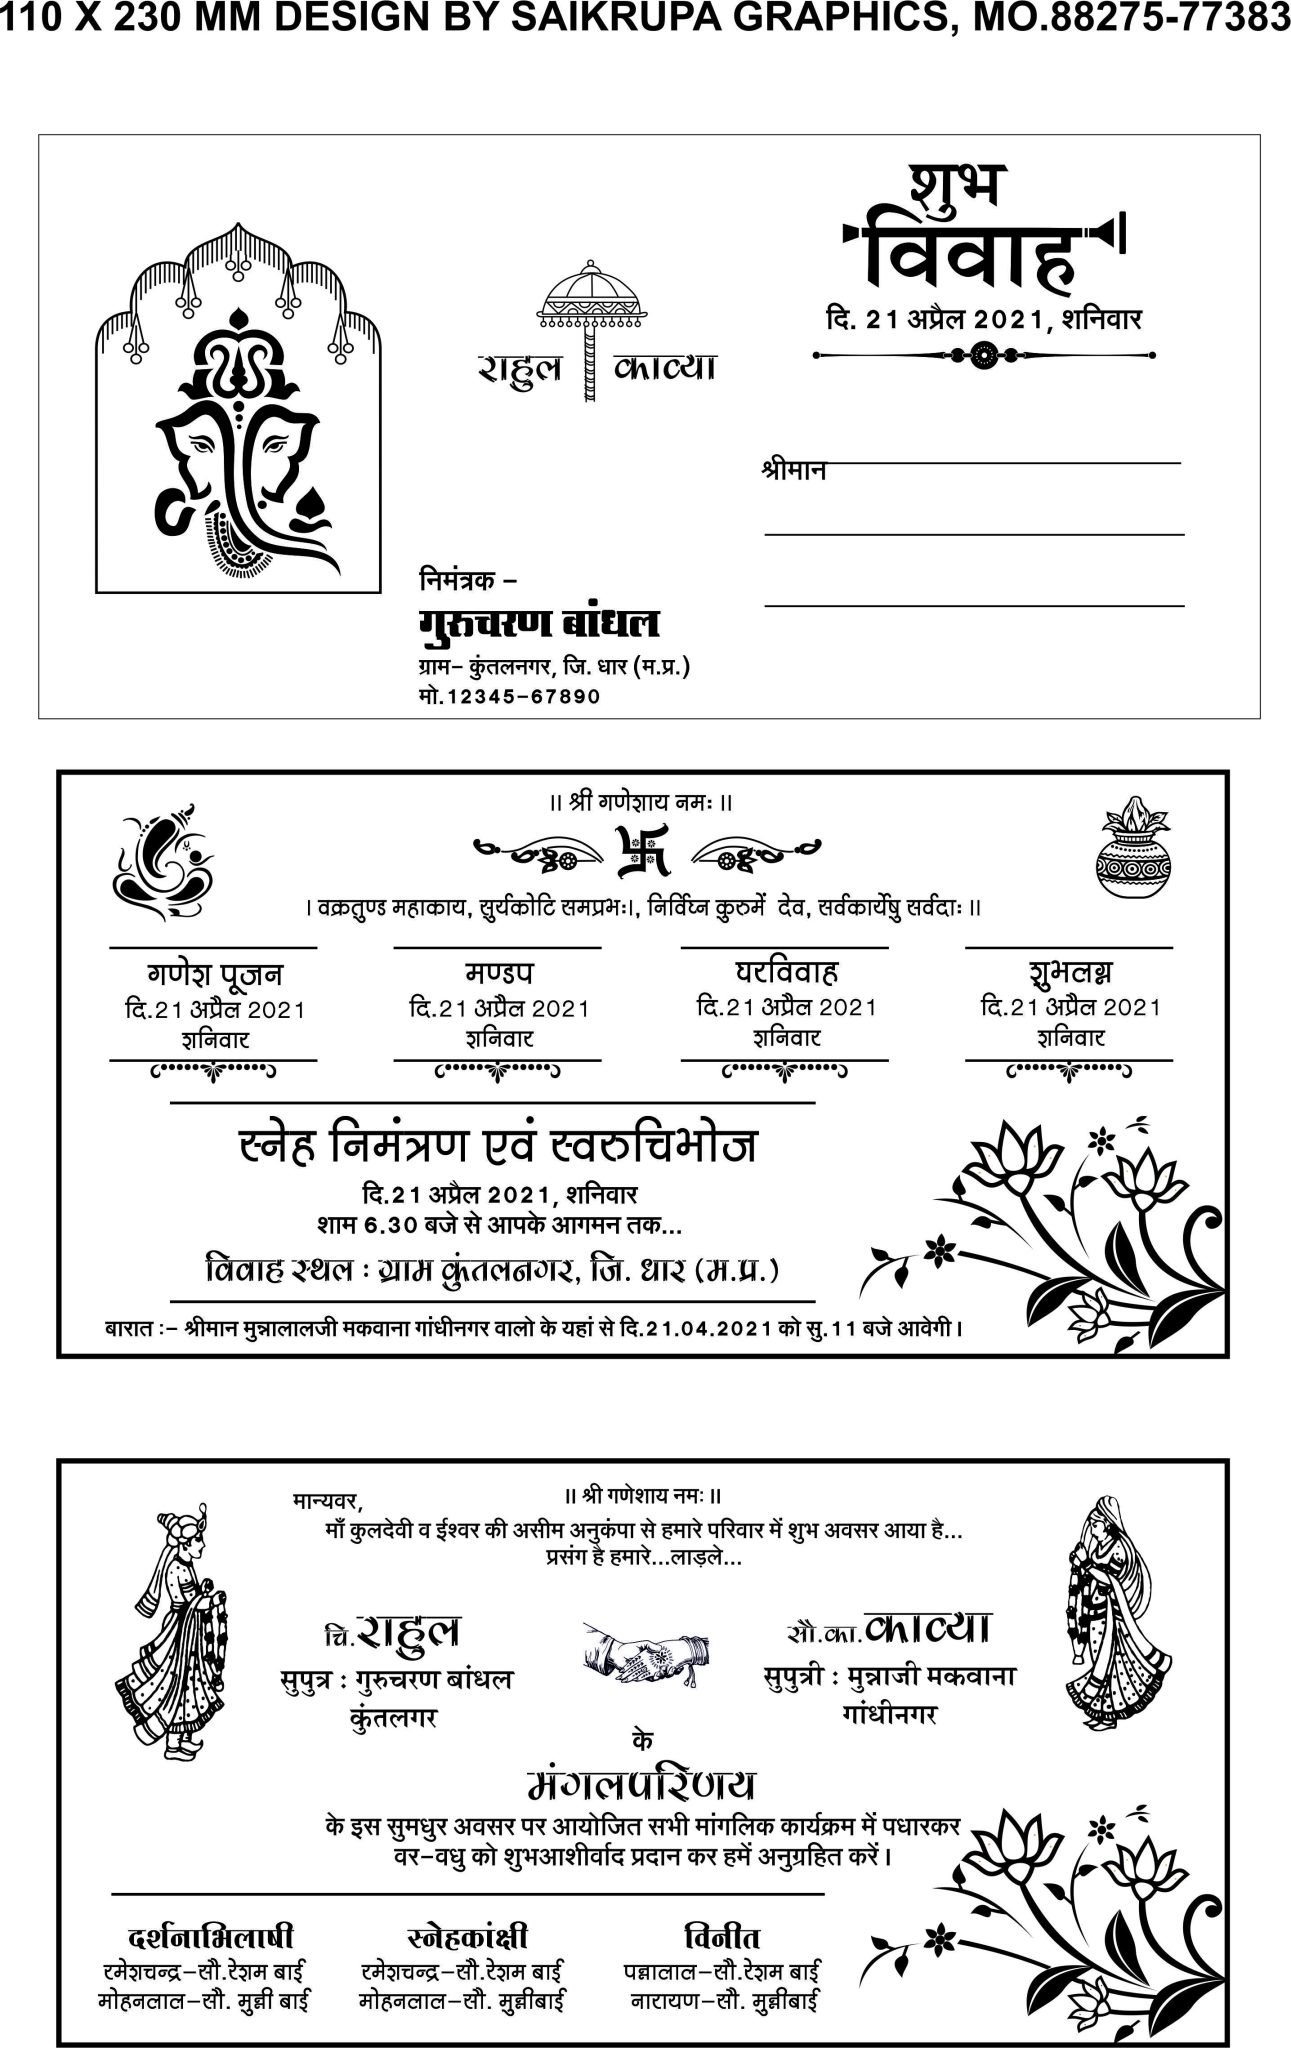 110 X 230 MM DESIGN BY SAIKRUPA GRAPHICS, MO.88275-77383
शुभ
विवाह
दि. 21 अप्रैल 2021, शनिवार
राहुल काव्या
श्रीमान
निमंत्रक –
गुरुचरण बांधल
ग्राम– कुंतलनगर, जि. धार (म.प्र.)
मो.12345-67890
।। श्री गणेशाय नमः ।।
। वक्रतुण्ड महाकाय, सुर्यकोटि समप्रभः।, निर्विघ्न कुरुमें देव, सर्वकार्येषु सर्वदाः ।।
गणेश पूजन
दि.21 अप्रैल 2021
शनिवार
मण्डप
दि.21 अप्रैल 2021
शनिवार
घरविवाह
दि.21 अप्रैल 2021
शनिवार
शुभलग्न
दि.21 अप्रैल 2021
शनिवार
स्नेह निमंत्रण एवं स्वरुचिभोज
दि.21 अप्रैल 2021, शनिवार
शाम 6.30 बजे से आपके आगमन तक...
विवाह स्थल : ग्राम कुंतलनगर, जि. धार (म.प्र.)
बारात :– श्रीमान मुन्नालालजी मकवाना गांधीनगर वालो के यहां से दि.21.04.2021 को सु.11 बजे आवेगी।
।। श्री गणेशाय नमः ।।
मान्यवर,
माँ कुलदेवी व ईश्वर की असीम अनुकंपा से हमारे परिवार में शुभ अवसर आया है...
प्रसंग है हमारे...लाड़ले...
चि.राहुल
सुपुत्र : गुरुचरण बांधल
कुंतलगर
सौ.का.काव्या
सुपुत्री : मुन्नाजी मकवाना
गांधीनगर
के
मंगलपरिणय
के इस सुमधुर अवसर पर आयोजित सभी मांगलिक कार्यक्रम में पधारकर
वर–वधु को शुभआशीर्वाद प्रदान कर हमें अनुग्रहित करें।
दर्शनाभिलाषी
रमेशचन्द्र–सौ.रेशम बाई
मोहनलाल–सौ. मुन्नी बाई
स्नेहकांक्षी
रमेशचन्द्र–सौ.रेशम बाई
मोहनलाल–सौ. मुन्नीबाई
विनीत
पन्नालाल–सौ.रेशम बाई
नारायण–सौ. मुन्नीबाई